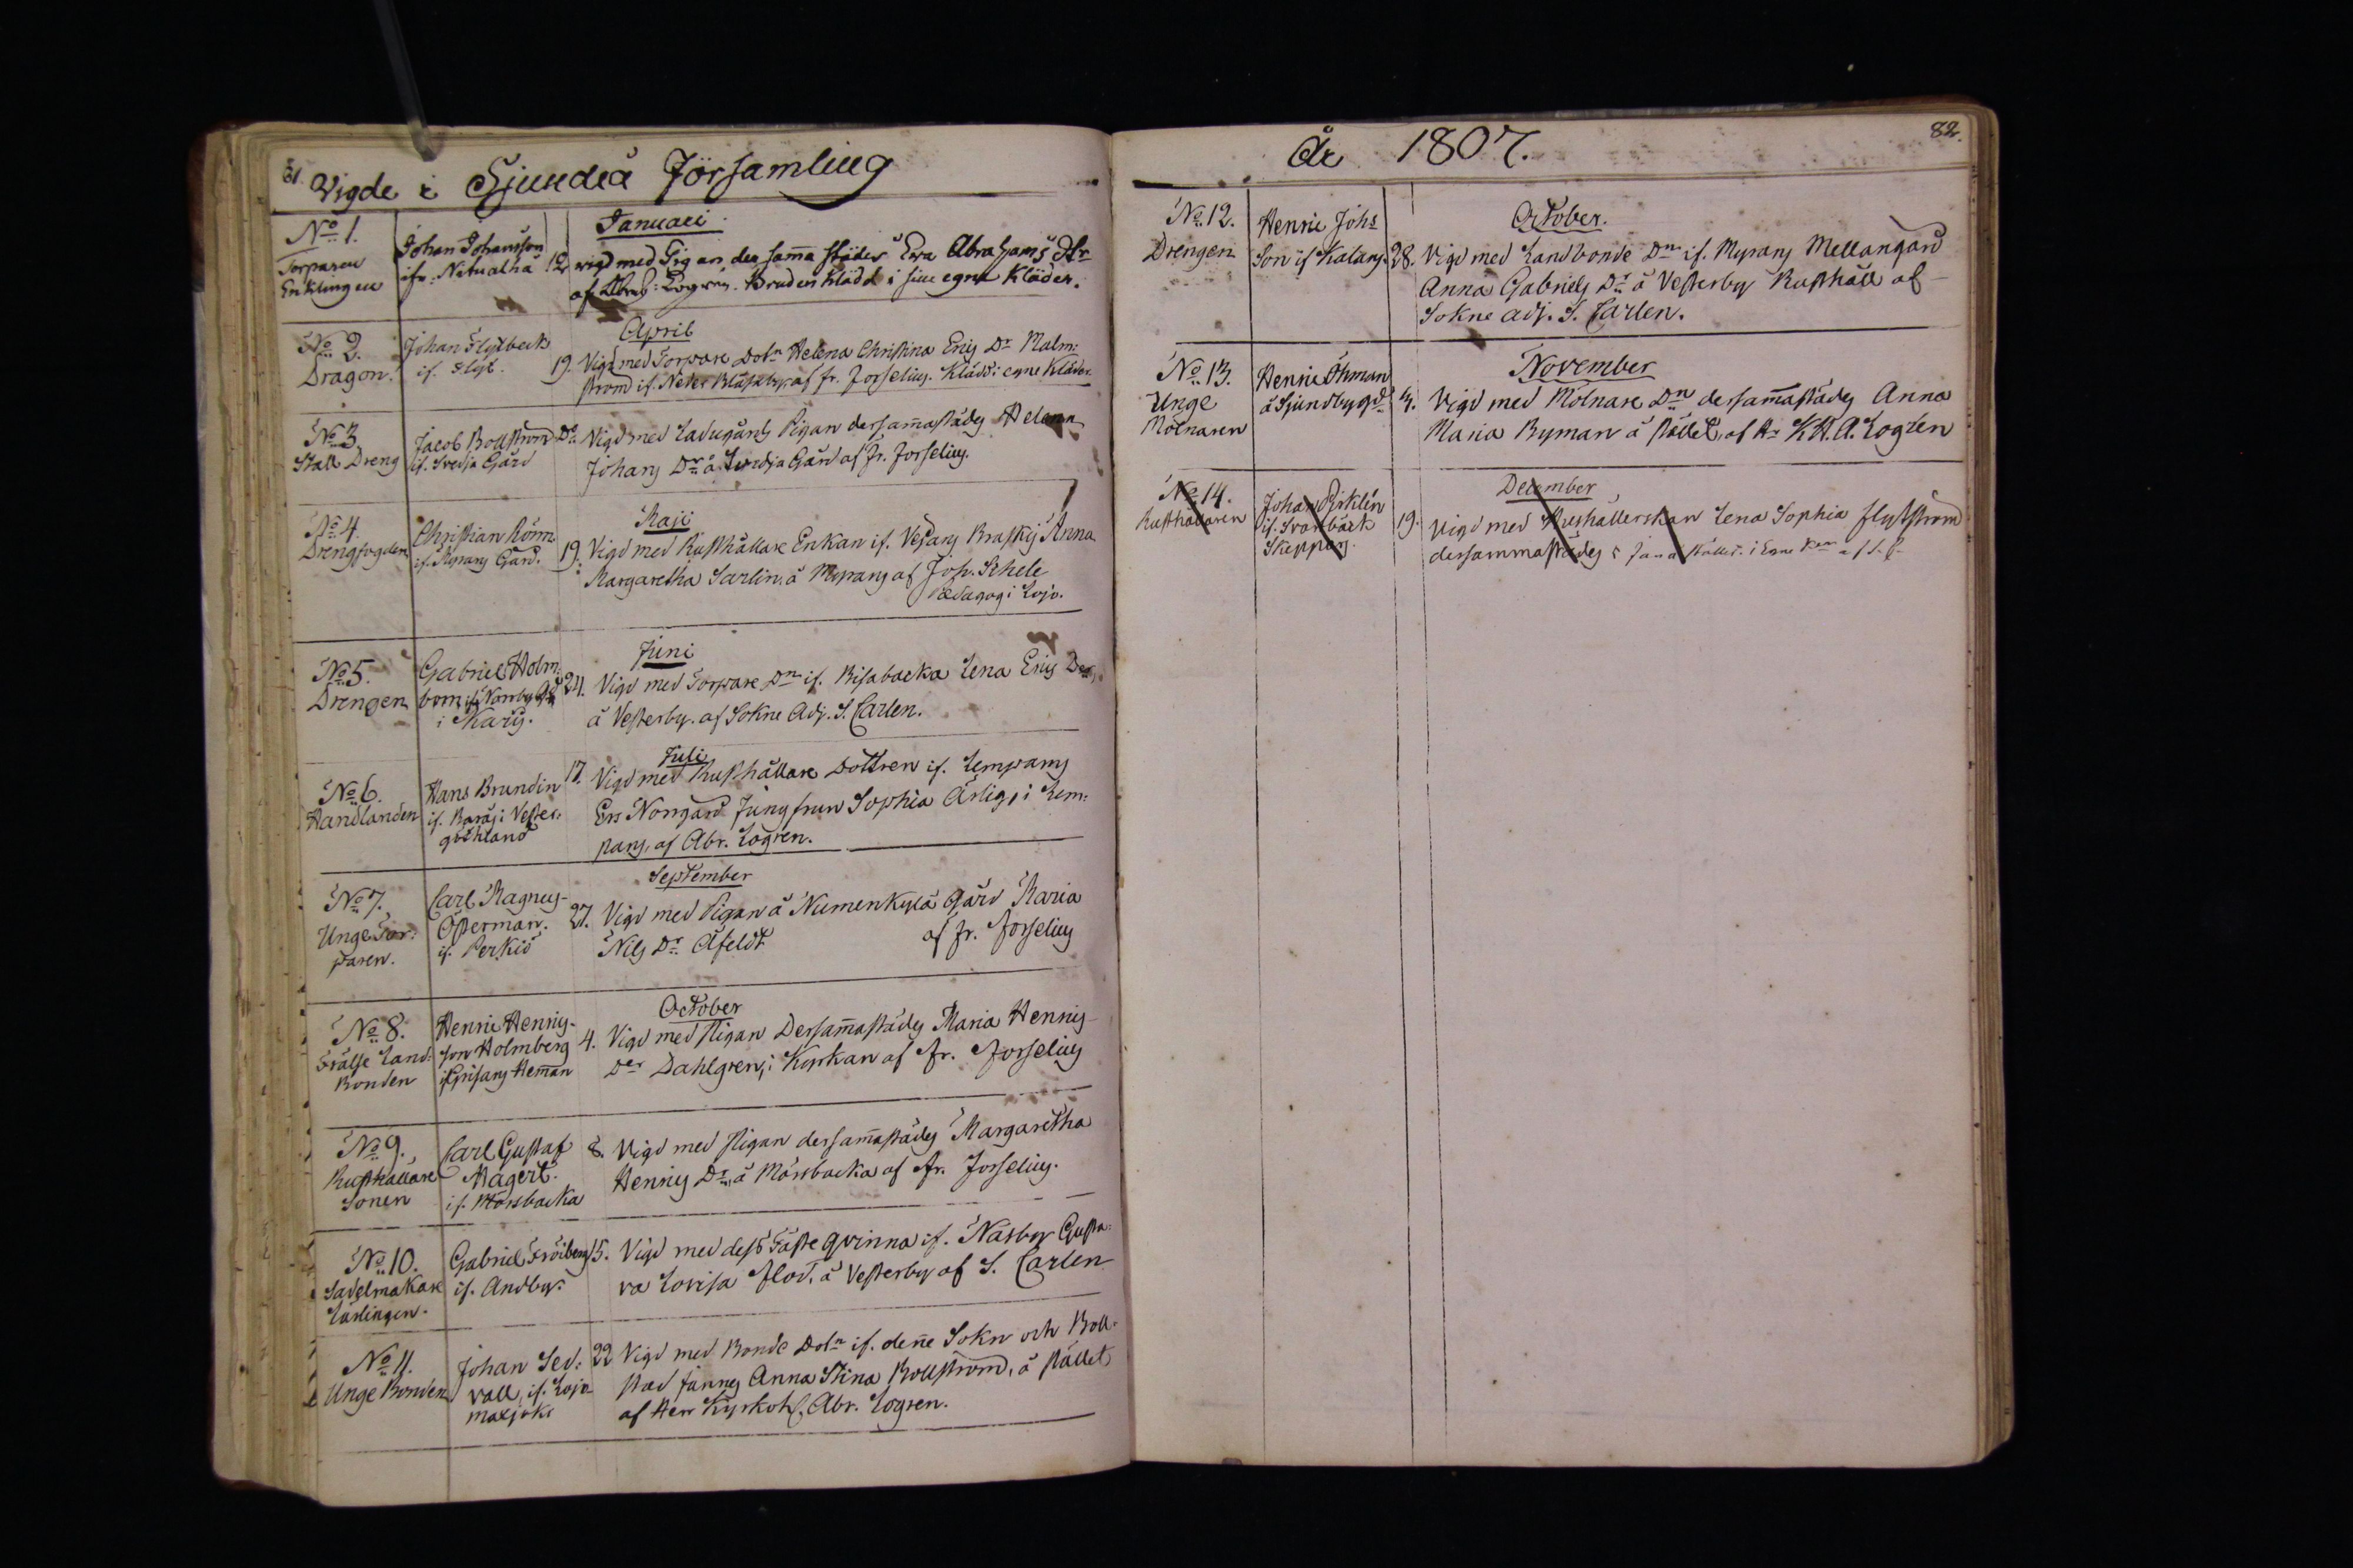 81.
Vigde i Sjundeå Församling
No 1.
Torparen
Enklingen
Johan Johansson
ifr. Nitualha
Januari
12. vigd med Pigan der samma städes Ewa Abrahams Dr
af Abrah: Logren. Bruden Klädd i sine egna Kläder.
No 2.
Dragon.
Johan Flytbeck
if. Flyt.
April
19. Vigd med Torpare Dotn Helena Christina Erics Dr Malm:
ström if. Neder Blåsaby, af Fr. Forselius. Klädd i egne Kläder.
No 3.
Stall Dreng
Jacob Bollström
if. Svidja Gård
Do Vigd med Ladugårds Pigan dersammastädes Helena
Johans Dr å Svidja Gård af Fr. Forselius.
No 4.
Drengfogden
Christian Rönn
if. Myrans Gård.
Maji
19. Vigd med Rusthållare Enkan if. Vesans Braskis Anna
Margaretha Sarlin, å Myrans af Joh. Schele
Pædagog i Lojo.
No 5.
Drengen
Gabriel Holm:
bom if. Norrby Gd
i Karis.
Juni
24. Vigd med Torpare Dn if. Bisabacka Lena Erics Der,
å Vesterby. af Sokne Adj. S. Carlen.
No 6.
Handlanden
Hans Brundin
if. Borås i Vester:
göthland
Juli
17. Vigd med Rusthållare Dottren if. Lempans
Ers Norrgård Jungfrun Sophia Ärlig, i Lem:
pans, af Abr. Logren.
No 7.
Unge Tor:
paren.
Carl Magnus
Österman.
if. Perkiö
September
27. Vigd med Pigan å Numenkylä Gård Maria
Nils Dr Åfeldt af Fr. Forselius
No 8.
Frälse Land:
Bonden
Henric Henrics
son Holmberg
if. Grisans Heman
October
4. Vigd med Pigan Dersammastädes Maria Henrics
Der Dahlgren, i Kyrkan af Fr. Forselius
No 9.
Rusthållare
Sonen
Carl Gustaf
Magert.
if. Mårsbacka
8. Vigd med Pigan dersammastädes Margaretha
Henrics Dr, å Mårsbacka af Fr. Forselius.
No 10.
Sadelmakare
Lärlingen.
Gabriel Fröiberg
if. Andby.
15. Vigd med dess Fäste qvinna if. Näsby Gusta:
va Lovisa Flod, å Vesterby af S. Carlen
No 11.
Unge Bonden
Johan Sed:
vall, if. Lojo
maxjoki
22 Vigd med Bonde Dotn if. denne Sokn och Boll:
stad Jannes Anna Stina Bollström, å stället
af Herr Kyrkoh. Abr. Logren.
År 1807.
82.
No 12.
Drengen
Henric Johs
Son if. Kalans.
October.
28. Vigd med Landbonde Dn if. Myrans Mellangård
Anna Gabriels Dr å Vesterby Rusthåll af
Sokne adj. S. Carlen.
No 13.
Unge
Mölnaren
Henric Öhman
å Sjundby qd
November
4. Vigd med Mölnare Dn dersammastädes Anna
Maria Ryman å stället, af Hr K.H.A. Logren
No 14.
Rusthållaren
Johan Ryklén
if. Svartbäck
Skeppars
December
19. Vigd med Hushållerskan Lena Sophia Flytström
dersammastädes